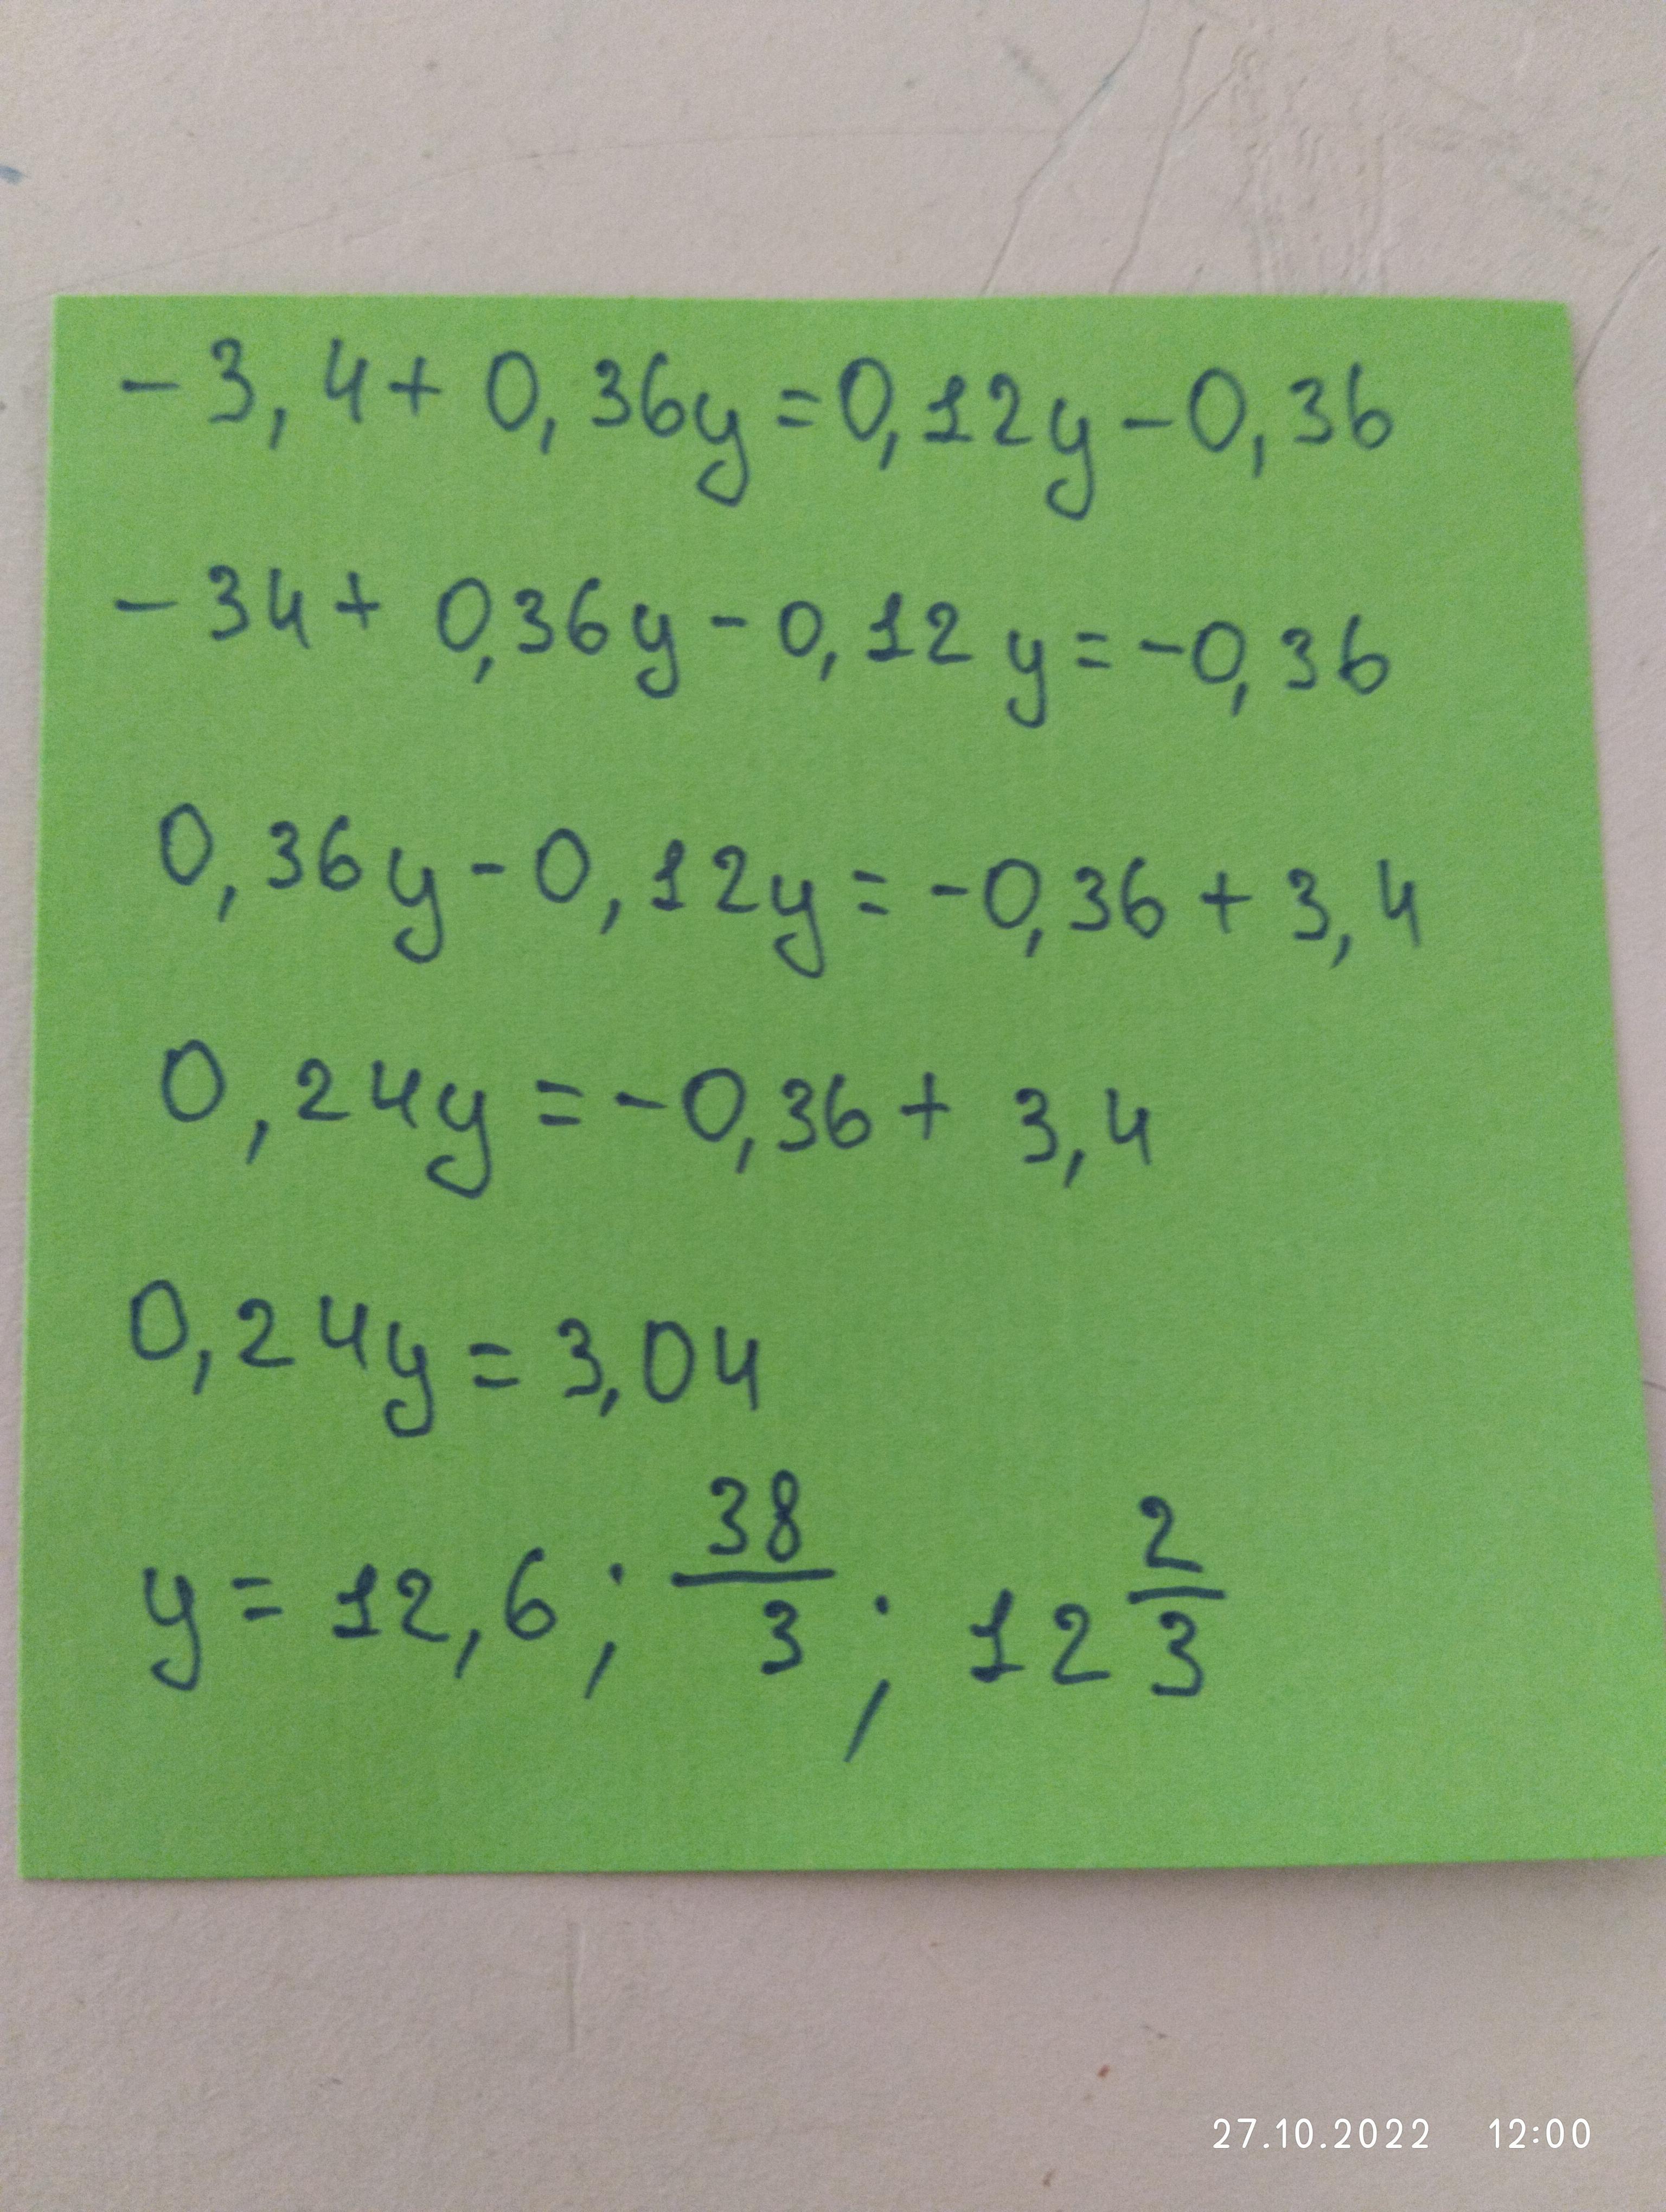 -3,4+0,36y=0,12y-0,36
-34+0,36y-0,12y=-0,36
0,36y-0,12y=-0,36+3,4
0,24y=-0,36+3,4
0,24y=3,04
y=12,6; 38/3; 12 2/3
27.10.2022 12:00